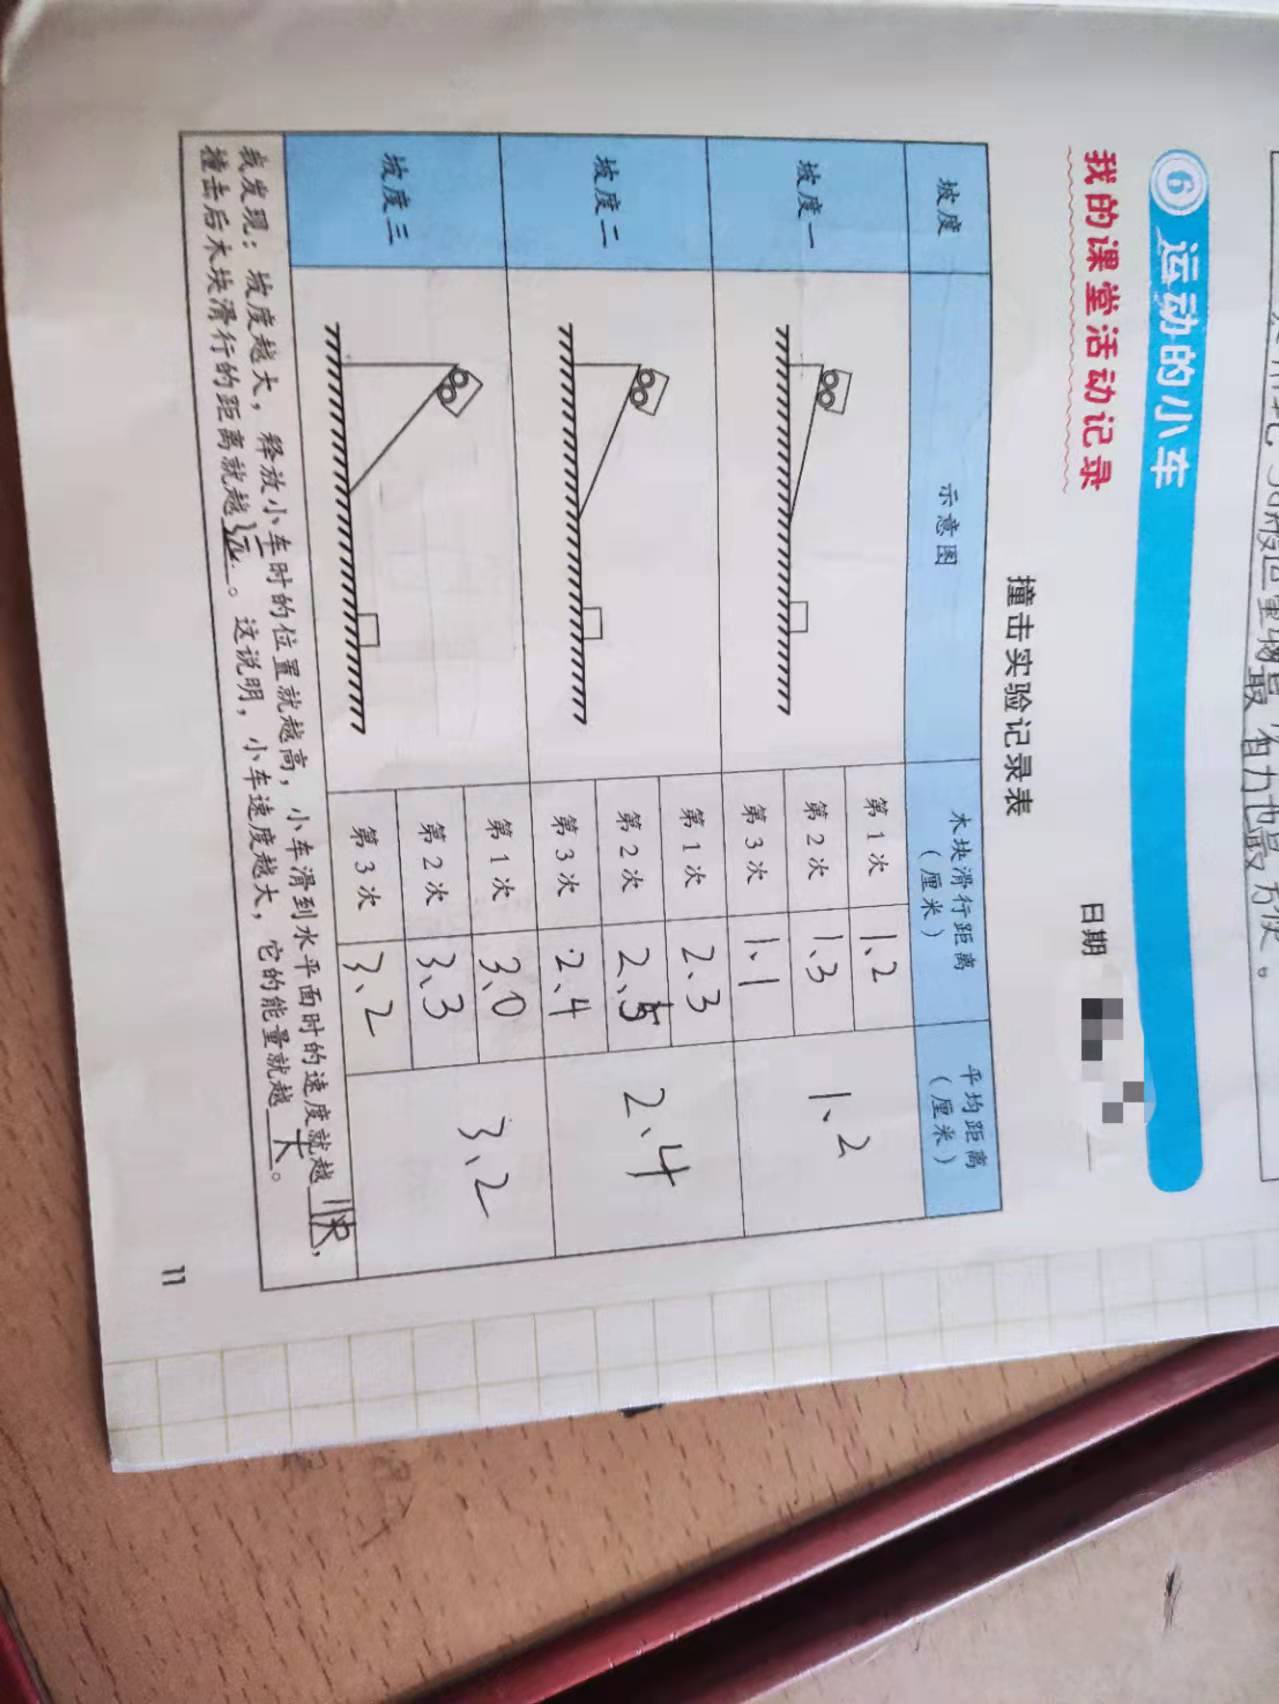 ⑥ 运动的小车
我的课堂活动记录
日期
撞击实验记录表
坡度 示意图 木块滑行距离（厘米） 平均距离（厘米）
坡度一 第1次 1、2 1、2
第2次 1、3
第3次 1、1
坡度二 第1次 2、3 2、4
第2次 2、5
第3次 2、4
坡度三 第1次 3、0 3、2
第2次 3、3
第3次 3、2
我发现：坡度越大，释放小车时的位置就越高，小车滑到水平面时的速度就越快，
撞击后木块滑行的距离就越远。这说明，小车速度越大，它的能量就越大。
11